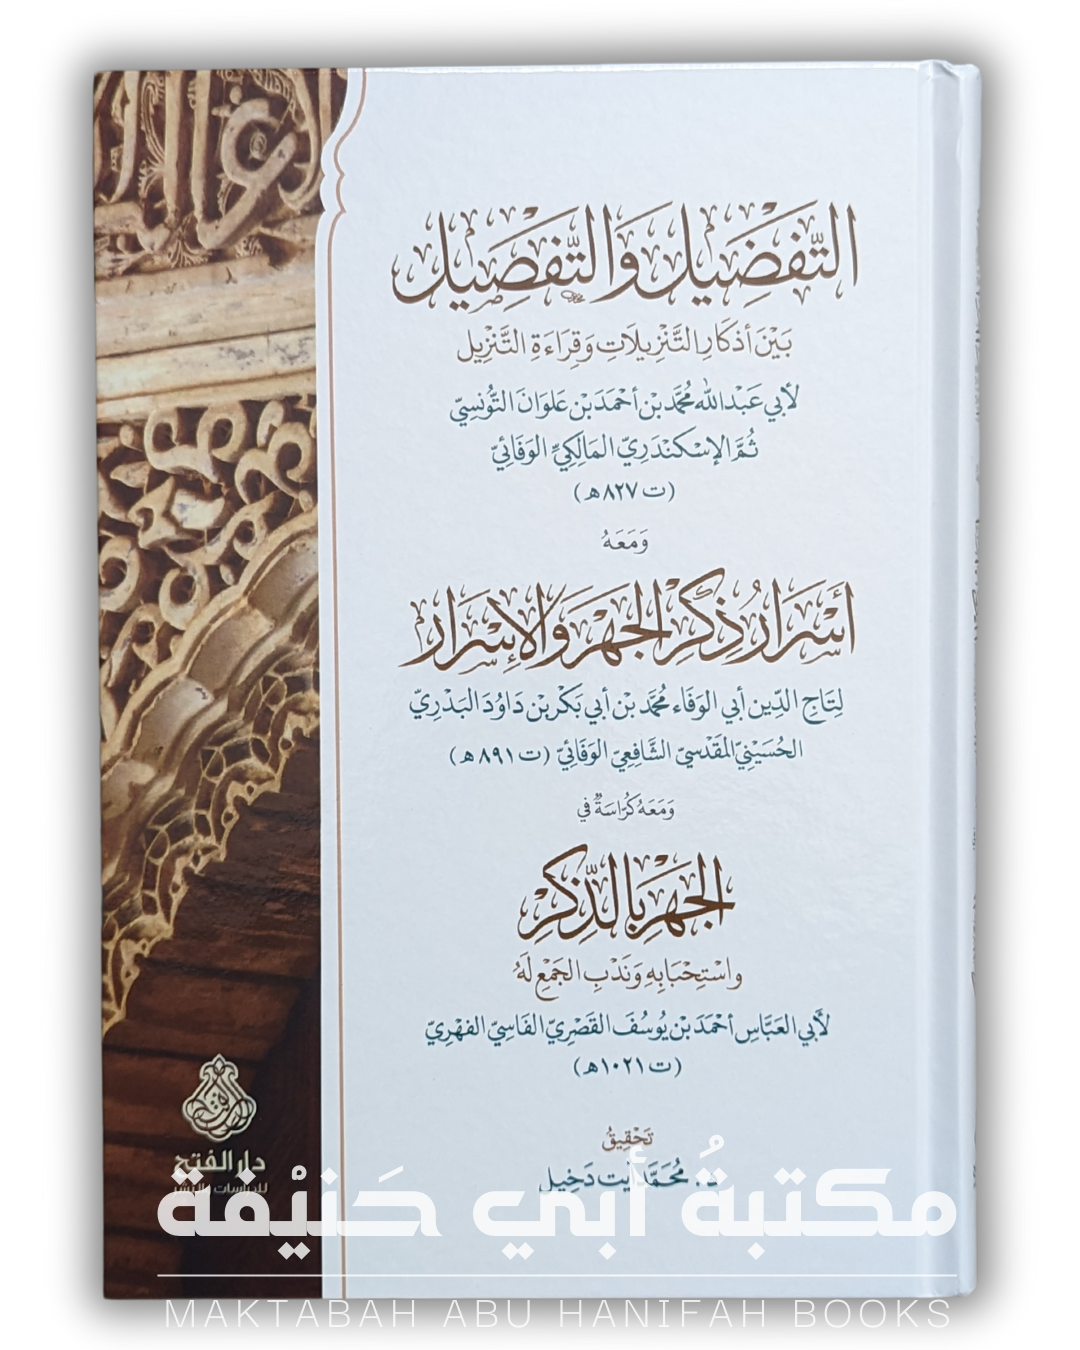 التَّفْضِيل وَالتَّفْصِيل
بَيْنَ أذكَارِ التَّنْزِيلَاتِ وَقِرَاءَةِ التَّنْزِيل
لأبي عَبْدالله مُحمَّد بْن أحْمَدَ بْن عَلوَانَ التّونُسِيّ
ثُمَّ الإسْكَنْدَرِيّ المَالِكيِّ الوَفَائِيّ
(ت ٨٢٧ هـ)
وَمَعَهُ
أَسْرَارُ ذِكْرِ الجَهْرِ وَالإِسْرَارِ
لِتَاجِ الدِّين أبي الوَفَاء مُحمَّد بْن أبي بَكْر بْن دَاوُدَ البَدْرِيّ
الحُسَيْنِيّ المَقْدسِيّ الشَّافِعِيّ الوَفَائِيّ (ت ٨٩١ هـ)
وَمَعَهُ كُرَّاسَةٌ في
الجَهْرِ بالذِّكْرِ
واسْتِحْبَابِهِ وَنَدْبِ الجَمْعِ لَهُ
لأَبي العَبَّاسِ أحْمَدَ بْن يُوسُفَ القَصْرِيّ الفَاسِيّ الفهْرِيّ
(ت ١٠٢١ هـ)
تَحْقِيقُ
د. مُحَمَّد أيت دَخِيل
دار الفتح
للدراسات والنشر
مكتبةُ أبي حَنيْفة
MAKTABAH ABU HANIFAH BOOKS